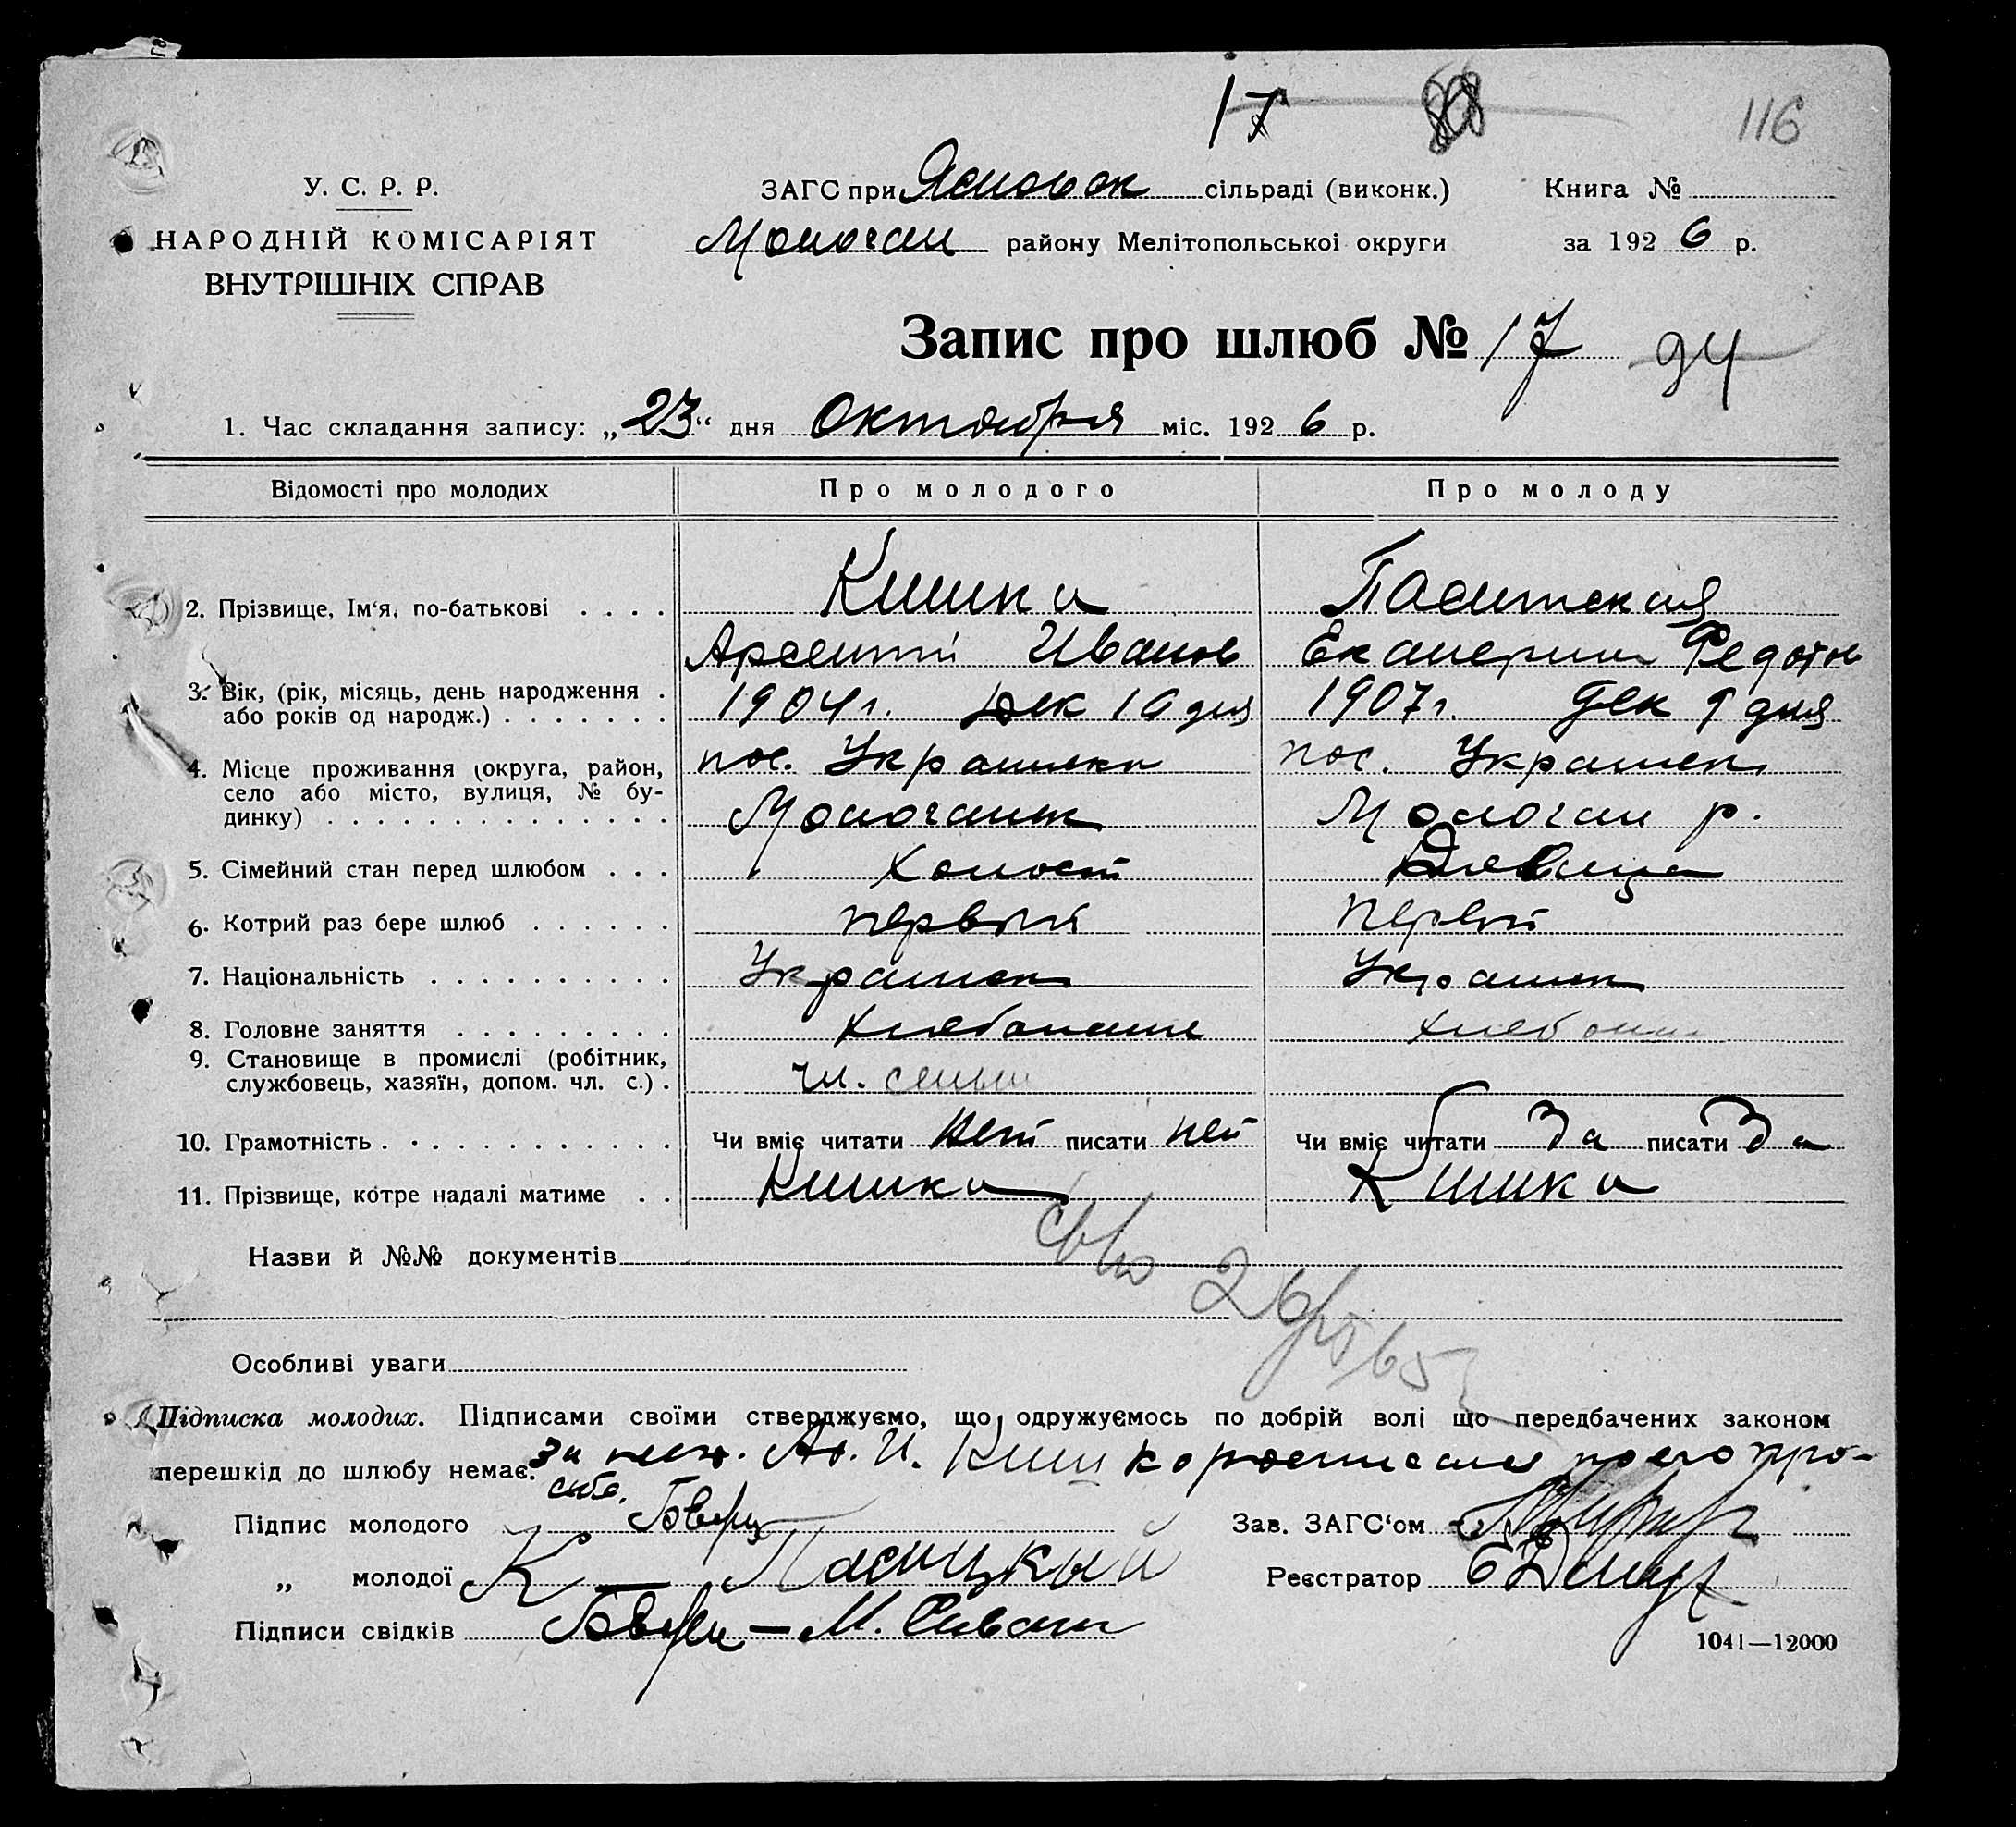 17 116
У. С. Р. Р.
НАРОДНІЙ КОМІСАРІЯТ
ВНУТРІШНІХ СПРАВ
ЗАГС при Ясновск сільраді (виконк.) Книга №
Молочан району Мелітопольської округи за 1926 р.
Запис про шлюб № 17 94
1. Час складання запису: „23“ дня Октября міс. 1926 р.
Відомості про молодих Про молодого Про молоду
2. Прізвище, Ім'я, по-батькові . . . . Кишка
Арсентий Иванов Екатерина Федотов
3. Вік, (рік, місяць, день народження .
або років од народж.) . . . . . . . 1904 г. Дек 19 дня 1907 г. Дек 9 дня
4. Місце проживання (округа, район,
село або місто, вулиця, № бу-
динку) . . . . . . . . . . . . . .
пос. Украинка пос. Украинк
Молочанск Молочан р.
5. Сімейний стан перед шлюбом . . . холост Девица
6. Котрий раз бере шлюб . . . . . . первый первый
7. Національність . . . . . . . . . . Украинец Украинк
8. Головне заняття . . . . . . . . . хлебопаш хлебопаш
9. Становище в промислі (робітник,
службовець, хазяїн, допом. чл. с.) . чл. семьи
10. Грамотність . . . . . . . . . . . Чи вміє читати нет писати нет Чи вміє читати Да писати Да
11. Прізвище, котре надалі матиме . . Кишка Кишка
Назви й №№ документів
Особливі уваги
Підписка молодих. Підписами своїми стверджуємо, що одружуємось по добрій волі що передбачених законом
перешкід до шлюбу немає. за негр. Ар. И. Кишко росписался по его про-
сьбе.
Підпис молодого Зав. ЗАГС'ом
„ молодої К — Пасицкый Реєстратор
Підписи свідків — М. Сивати
1041—12000